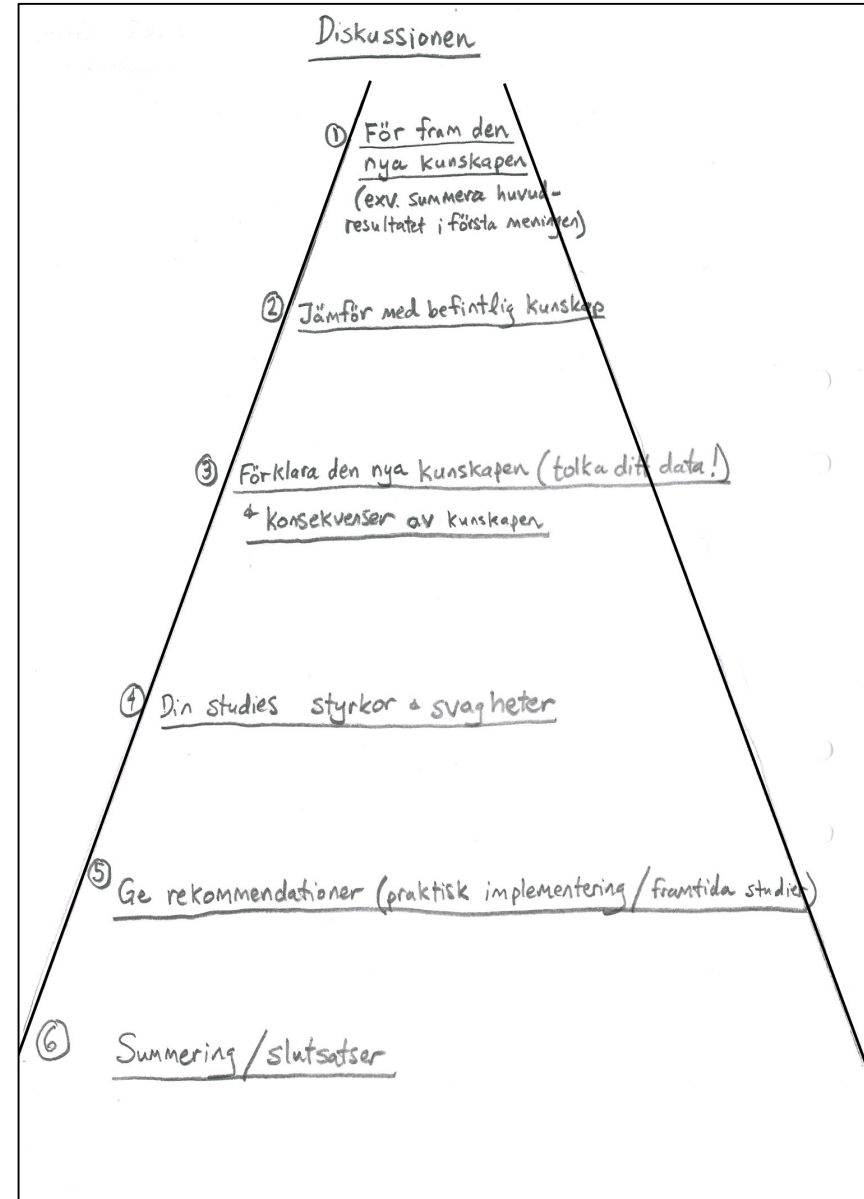 Diskussionen
① För fram den
nya kunskapen
(exv. summera huvud-
resultatet i första meningen)
② Jämför med befintlig kunskap
③ Förklara den nya kunskapen (tolka ditt data!)
& konsekvenser av kunskapen
④ Din studies styrkor & svagheter
⑤ Ge rekommendationer (praktisk implementering / framtida studier)
⑥ Summering / slutsatser